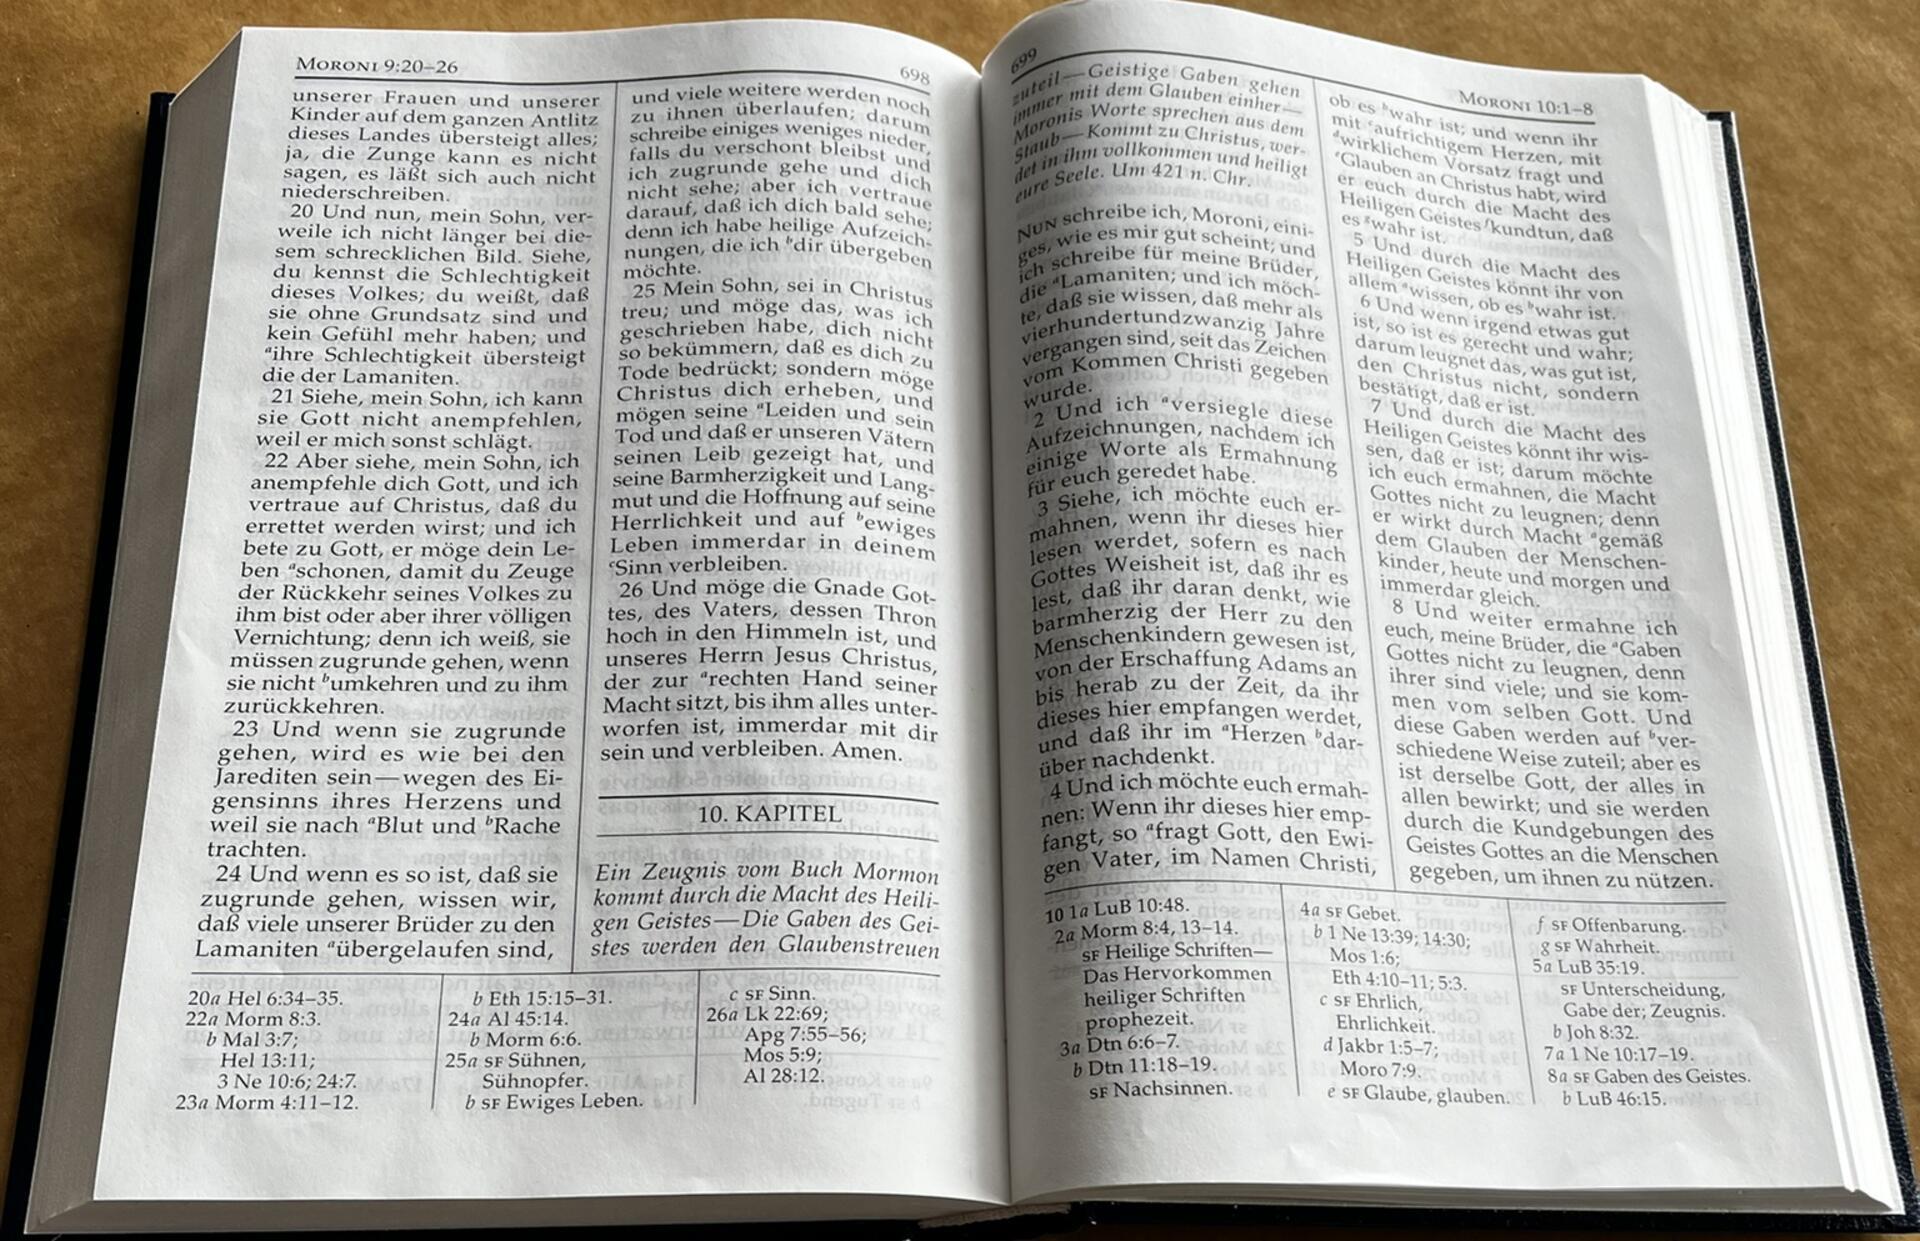 MORONI 9:20–26
698
unserer Frauen und unserer
Kinder auf dem ganzen Antlitz
dieses Landes übersteigt alles;
ja, die Zunge kann es nicht
sagen, es läßt sich auch nicht
niederschreiben.
20 Und nun, mein Sohn, ver-
weile ich nicht länger bei die-
sem schrecklichen Bild. Siehe,
du kennst die Schlechtigkeit
dieses Volkes; du weißt, daß
sie ohne Grundsatz sind und
kein Gefühl mehr haben; und
ᵃihre Schlechtigkeit übersteigt
die der Lamaniten.
21 Siehe, mein Sohn, ich kann
sie Gott nicht anempfehlen,
weil er mich sonst schlägt.
22 Aber siehe, mein Sohn, ich
anempfehle dich Gott, und ich
vertraue auf Christus, daß du
errettet werden wirst; und ich
bete zu Gott, er möge dein Le-
ben ᵃschonen, damit du Zeuge
der Rückkehr seines Volkes zu
ihm bist oder aber ihrer völligen
Vernichtung; denn ich weiß, sie
müssen zugrunde gehen, wenn
sie nicht ᵇumkehren und zu ihm
zurückkehren.
23 Und wenn sie zugrunde
gehen, wird es wie bei den
Jarediten sein—wegen des Ei-
gensinns ihres Herzens und
weil sie nach ᵃBlut und ᵇRache
trachten.
24 Und wenn es so ist, daß sie
zugrunde gehen, wissen wir,
daß viele unserer Brüder zu den
Lamaniten ᵃübergelaufen sind,
und viele weitere werden noch
zu ihnen überlaufen; darum
schreibe einiges weniges nieder,
falls du verschont bleibst und
ich zugrunde gehe und dich
nicht sehe; aber ich vertraue
darauf, daß ich dich bald sehe;
denn ich habe heilige Aufzeich-
nungen, die ich ᵇdir übergeben
möchte.
25 Mein Sohn, sei in Christus
treu; und möge das, was ich
geschrieben habe, dich nicht
so bekümmern, daß es dich zu
Tode bedrückt; sondern möge
Christus dich erheben, und
mögen seine ᵃLeiden und sein
Tod und daß er unseren Vätern
seinen Leib gezeigt hat, und
seine Barmherzigkeit und Lang-
mut und die Hoffnung auf seine
Herrlichkeit und auf ᵇewiges
Leben immerdar in deinem
ᶜSinn verbleiben.
26 Und möge die Gnade Got-
tes, des Vaters, dessen Thron
hoch in den Himmeln ist, und
unseres Herrn Jesus Christus,
der zur ᵃrechten Hand seiner
Macht sitzt, bis ihm alles unter-
worfen ist, immerdar mit dir
sein und verbleiben. Amen.
10. KAPITEL
Ein Zeugnis vom Buch Mormon
kommt durch die Macht des Heili-
gen Geistes—Die Gaben des Gei-
stes werden den Glaubenstreuen
20a Hel 6:34–35.
22a Morm 8:3.
b Mal 3:7;
Hel 13:11;
3 Ne 10:6; 24:7.
23a Morm 4:11–12.
b Eth 15:15–31.
24a Al 45:14.
b Morm 6:6.
25a SF Sühnen,
Sühnopfer.
b SF Ewiges Leben.
c SF Sinn.
26a Lk 22:69;
Apg 7:55–56;
Mos 5:9;
Al 28:12.
699
MORONI 10:1–8
zuteil—Geistige Gaben gehen
immer mit dem Glauben einher—
Moronis Worte sprechen aus dem
Staub—Kommt zu Christus, wer-
det in ihm vollkommen und heiligt
eure Seele. Um 421 n. Chr.
NUN schreibe ich, Moroni, eini-
ges, wie es mir gut scheint; und
ich schreibe für meine Brüder,
die ᵃLamaniten; und ich möch-
te, daß sie wissen, daß mehr als
vierhundertundzwanzig Jahre
vergangen sind, seit das Zeichen
vom Kommen Christi gegeben
wurde.
2 Und ich ᵃversiegle diese
Aufzeichnungen, nachdem ich
einige Worte als Ermahnung
für euch geredet habe.
3 Siehe, ich möchte euch er-
mahnen, wenn ihr dieses hier
lesen werdet, sofern es nach
Gottes Weisheit ist, daß ihr es
lest, daß ihr daran denkt, wie
barmherzig der Herr zu den
Menschenkindern gewesen ist,
von der Erschaffung Adams an
bis herab zu der Zeit, da ihr
dieses hier empfangen werdet,
und daß ihr im ᵃHerzen ᵇdar-
über nachdenkt.
4 Und ich möchte euch ermah-
nen: Wenn ihr dieses hier emp-
fangt, so ᵃfragt Gott, den Ewi-
gen Vater, im Namen Christi,
ob es ᵇwahr ist; und wenn ihr
mit ᶜaufrichtigem Herzen, mit
ᵈwirklichem Vorsatz fragt und
ᵉGlauben an Christus habt, wird
er euch durch die Macht des
Heiligen Geistes ᶠkundtun, daß
es ᵍwahr ist.
5 Und durch die Macht des
Heiligen Geistes könnt ihr von
allem ᵃwissen, ob es ᵇwahr ist.
6 Und wenn irgend etwas gut
ist, so ist es gerecht und wahr;
darum leugnet das, was gut ist,
den Christus nicht, sondern
bestätigt, daß er ist.
7 Und durch die Macht des
Heiligen Geistes könnt ihr wis-
sen, daß er ist; darum möchte
ich euch ermahnen, die Macht
Gottes nicht zu leugnen; denn
er wirkt durch Macht ᵃgemäß
dem Glauben der Menschen-
kinder, heute und morgen und
immerdar gleich.
8 Und weiter ermahne ich
euch, meine Brüder, die ᵃGaben
Gottes nicht zu leugnen, denn
ihrer sind viele; und sie kom-
men vom selben Gott. Und
diese Gaben werden auf ᵇver-
schiedene Weise zuteil; aber es
ist derselbe Gott, der alles in
allen bewirkt; und sie werden
durch die Kundgebungen des
Geistes Gottes an die Menschen
gegeben, um ihnen zu nützen.
10 1a LuB 10:48.
2a Morm 8:4, 13–14.
SF Heilige Schriften—
Das Hervorkommen
heiliger Schriften
prophezeit.
3a Dtn 6:6–7.
b Dtn 11:18–19.
SF Nachsinnen.
4a SF Gebet.
b 1 Ne 13:39; 14:30;
Mos 1:6;
Eth 4:10–11; 5:3.
c SF Ehrlich,
Ehrlichkeit.
d Jakbr 1:5–7;
Moro 7:9.
e SF Glaube, glauben.
f SF Offenbarung.
g SF Wahrheit.
5a LuB 35:19.
SF Unterscheidung,
Gabe der; Zeugnis.
b Joh 8:32.
7a 1 Ne 10:17–19.
8a SF Gaben des Geistes.
b LuB 46:15.